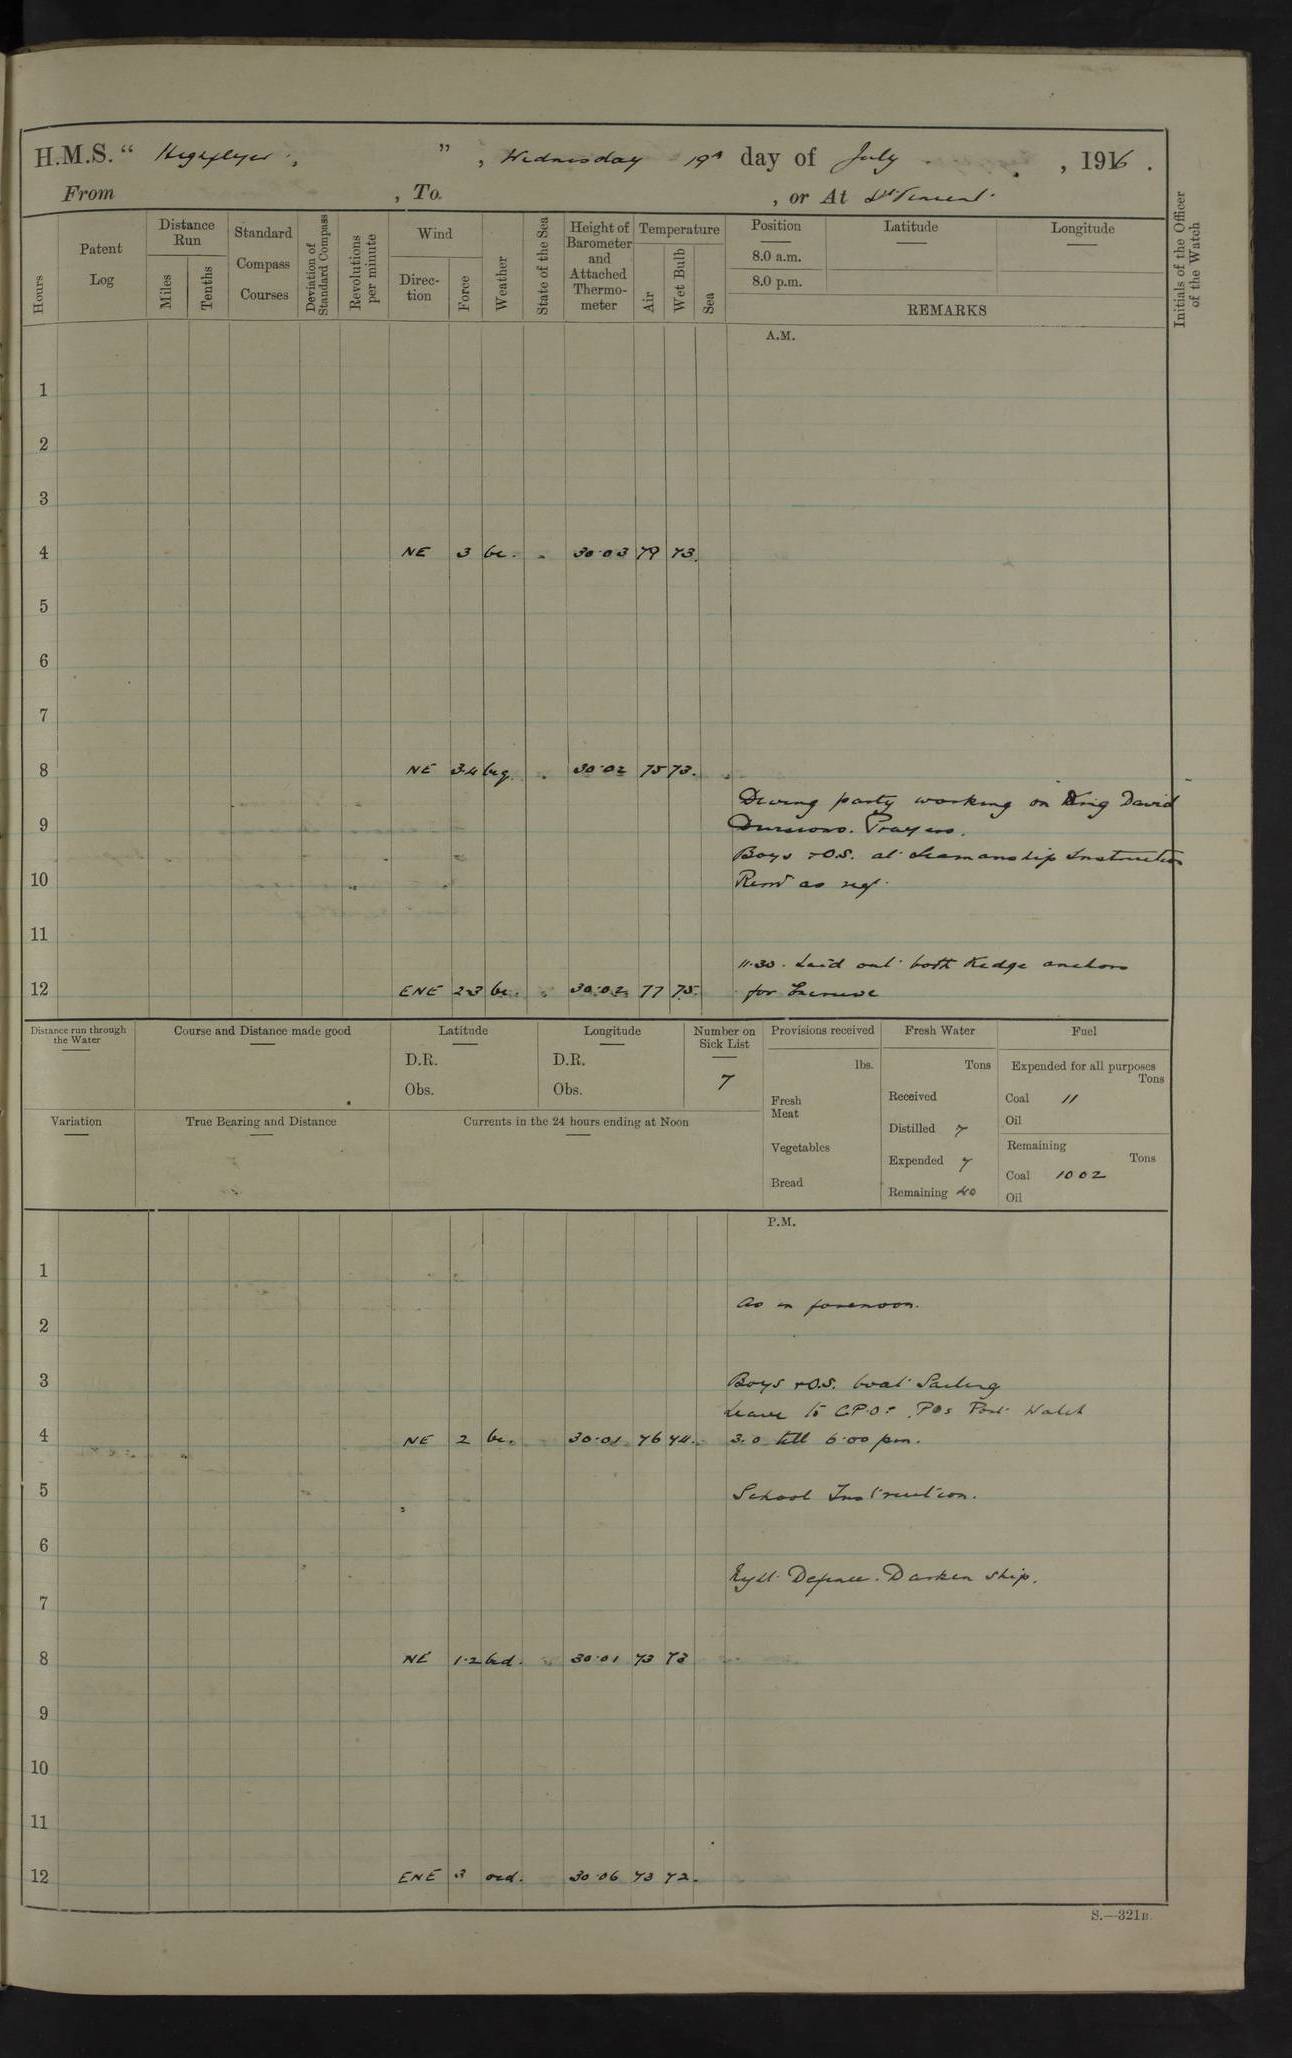 H.M.S. " Highflyer ", Wednesday 19th day of July, 1916.
From , To , or At St Vincent
Hours
Patent Log
Distance Run
Miles
Tenths
Standard Compass Courses
Deviation of Standard Compass
Revolutions per minute
Wind
Direction
Force
Weather
State of the Sea
Height of Barometer and Attached Thermometer
Temperature
Air
Wet Bulb
Sea
Position
8.0 a.m.
8.0 p.m.
Latitude
Longitude
REMARKS
Initials of the Officer of the Watch
A.M.
1
2
3
4 NE 3 bc. 30.03 79 73.
5
6
7
8 NE 3.4 bcq 30.02 75 73.
Diving party working on King David
9 Divisions. Prayers.
Boys + O.S. at Seamanship Instruction
10 Remr as req.
11
11.30. Laid out both Kedge anchors
12 ENE 2.3 bc. 30.02 77 75. for
Distance run through the Water
Course and Distance made good
Latitude
D.R.
Obs.
Longitude
D.R.
Obs.
Number on Sick List
7
Provisions received
lbs.
Fresh Meat
Vegetables
Bread
Fresh Water
Tons
Received
Distilled 7
Expended 7
Remaining 40
Fuel
Expended for all purposes
Tons
Coal 11
Oil
Remaining
Tons
Coal 1002
Oil
Variation
True Bearing and Distance
Currents in the 24 hours ending at Noon
P.M.
1
As in forenoon.
2
3 Boys + O.S. boat Sailing
Leave to C.P.Os, POs Port Watch
4 NE 2 bc. 30.01 76 74. 3.0 till 6.00 pm.
5 School Instruction.
6
Night Defence. Darken ship.
7
8 NE 1.2 bcd. 30.01 73 73
9
10
11
12 ENE 3 ocd. 30.06 73 72.
S.—321B.